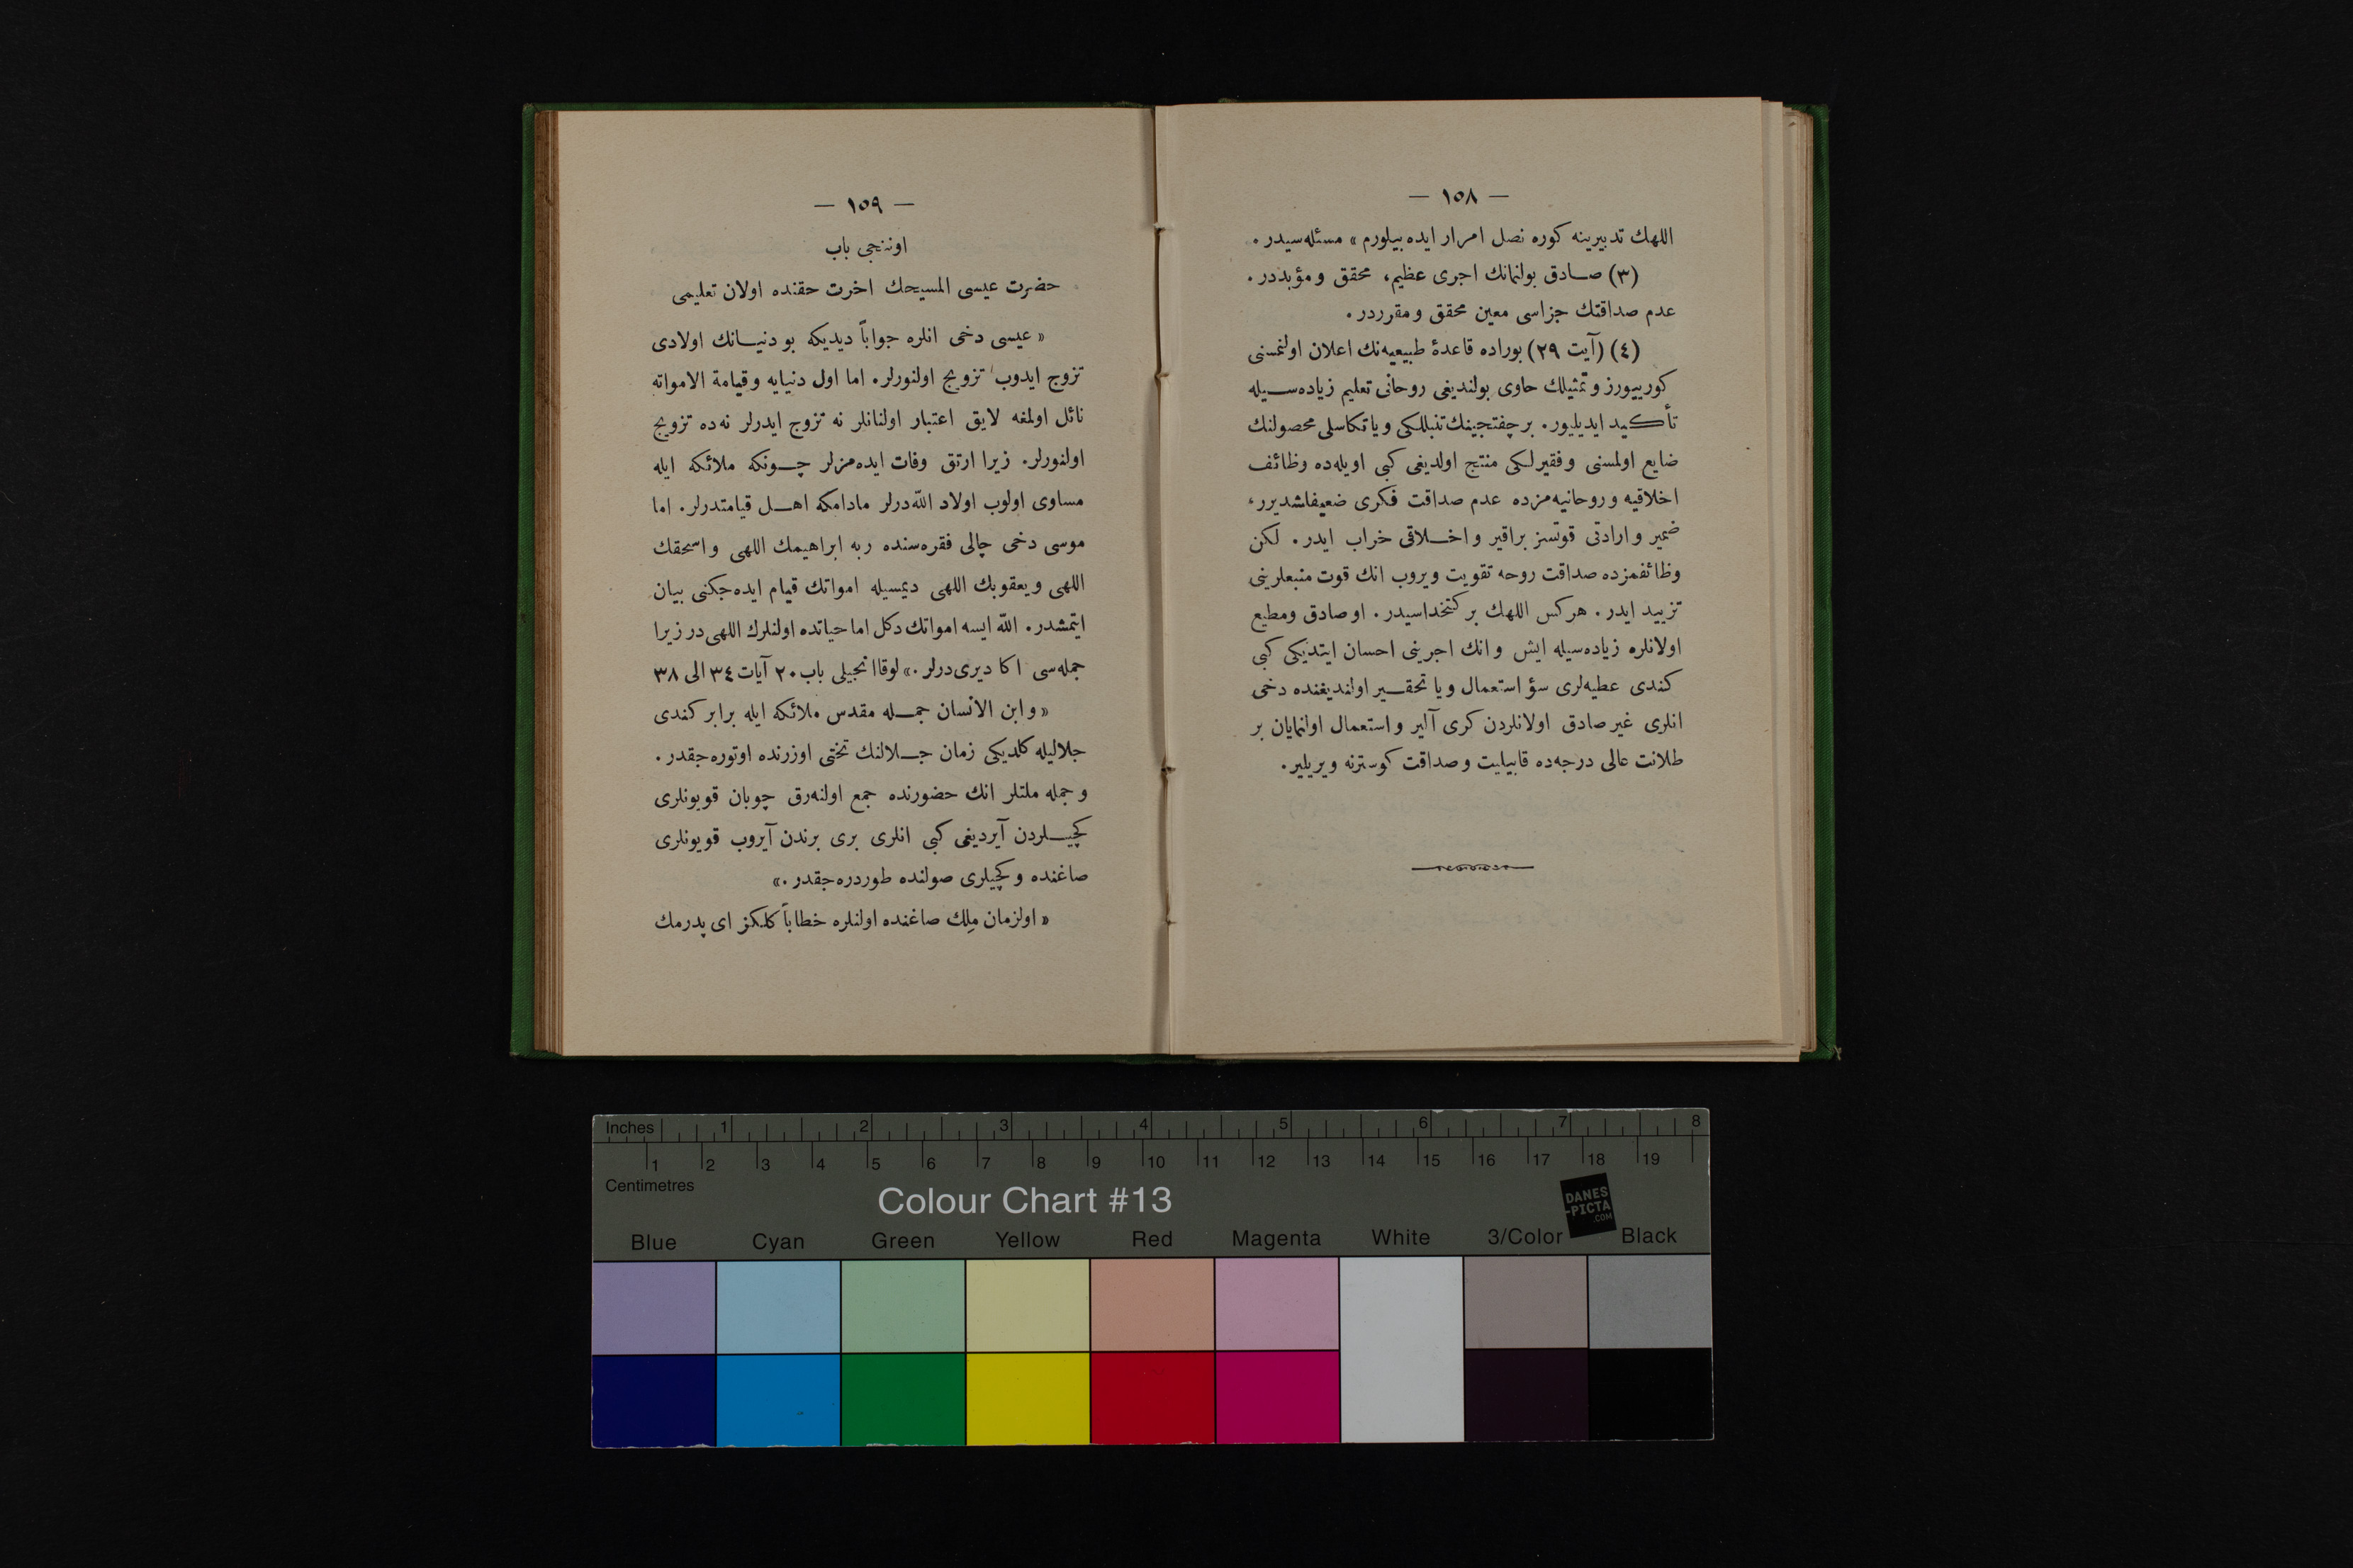 — ١٥٨ —
اللهك تدبیرینه كوره نصل امرار ایده بیلورم » مسئله‌سیدر .
(٣) صادق بولنمانك اجری عظیم، محقق و مؤبددر .
عدم صداقتك جزاسی معین محقق و مقرردر .
(٤) (آیت ٢٩) بوراده قاعدهٔ طبیعیه‌نك اعلان اولنمسنی
كورییورز و تمثیلك حاوی بولندیغی روحانی تعلیم زیاده‌سیله
تأكید ایدیلیور . بر چفتجینك تنبللكی ویا تكاسلی محصولنك
ضایع اولمسنی و فقیرلكی منتج اولدیغی كبی اویله‌ده وظائف
اخلاقیه و روحانیه‌مزده عدم صداقت فكری ضعیفلشدیرر،
ضمیر و ارادتی قوتسز براقیر و اخلاقی خراب ایدر . لكن
وظائفمزده صداقت روحه تقویت ویروب انك قوت منبعلرینی
تزیید ایدر . هركس اللهك بر كتخداسیدر . او صادق ومطیع
اولانلره زیاده‌سیله ایش و انك اجرینی احسان ایتدیكی كبی
كندی عطیه‌لری سؤ استعمال ویا تحقیر اولندیغنده دخی
انلری غیر صادق اولانلردن كری آلیر و استعمال اولنمایان بر
طلانت عالی درجه‌ده قابیلیت و صداقت كوسترنه ویریلیر.
— ١٥٩ —
اوننجی باب
حضرت عیسی المسیحك اخرت حقنده اولان تعلیمی
« عیسی دخی انلره جواباً دیدیكه بو دنیانك اولادی
تزوج ایدوب تزویج اولنورلر. اما اول دنیایه وقیامة الامواته
نائل اولمغه لایق اعتبار اولنانلر نه تزوج ایدرلر نه‌ده تزویج
اولنورلر. زیرا ارتق وفات ایده‌مزلر چونكه ملائكه ایله
مساوی اولوب اولاد الله‌درلر مادامكه اهل قیامتدرلر. اما
موسی دخی چالی فقره‌سنده ربه ابراهیمك اللهی و اسحقك
اللهی ویعقوبك اللهی دیمسیله امواتك قیام ایده‌جكنی بیان
ایتمشدر. الله ایسه امواتك دكل اما حیاتده اولنلرك اللهی‌در زیرا
جمله‌سی اكا دیری‌درلر.» لوقا انجیلی باب ٢٠ آیات ٣٤ الی ٣٨
« و ابن الانسان جمله مقدس ملائكه ایله برابر كندی
جلالیله كلدیكی زمان جلالنك تختی اوزرنده اوتوره‌جقدر .
و جمله ملتلر انك حضورنده جمع اولنه‌رق چوبان قویونلری
كچیلردن آیردیغی كبی انلری بری برندن آیروب قویونلری
صاغنده و كچیلری صولنده طوردره‌جقدر .»
« اولزمان مِلِك صاغنده اولنلره خطاباً كلیكز ای پدرمك
Inches 1 2 3 4 5 6 7 8
1 2 3 4 5 6 7 8 9 10 11 12 13 14 15 16 17 18 19
Centimetres
Colour Chart #13
DANES
-PICTA
.COM
Blue Cyan Green Yellow Red Magenta White 3/Color Black